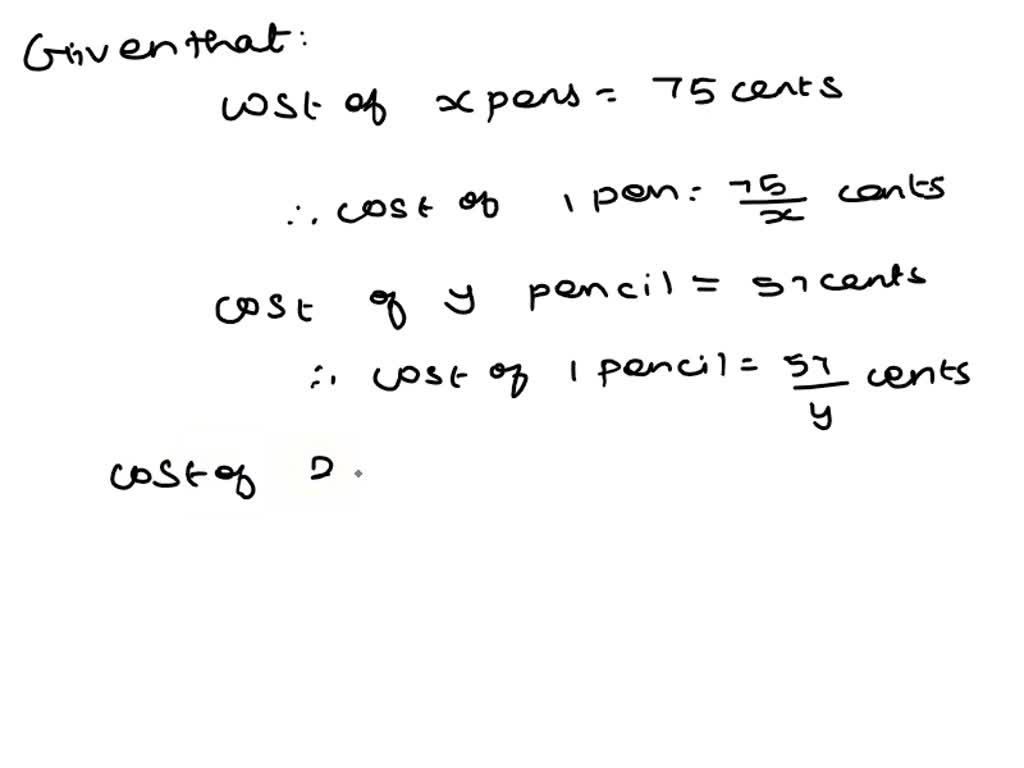 Given that:
cost of x pens = 75 cents
∴ cost of 1 pen = 75/x cents
cost of y pencil = 57 cents
∴ cost of 1 pencil = 57/y cents
cost of 2